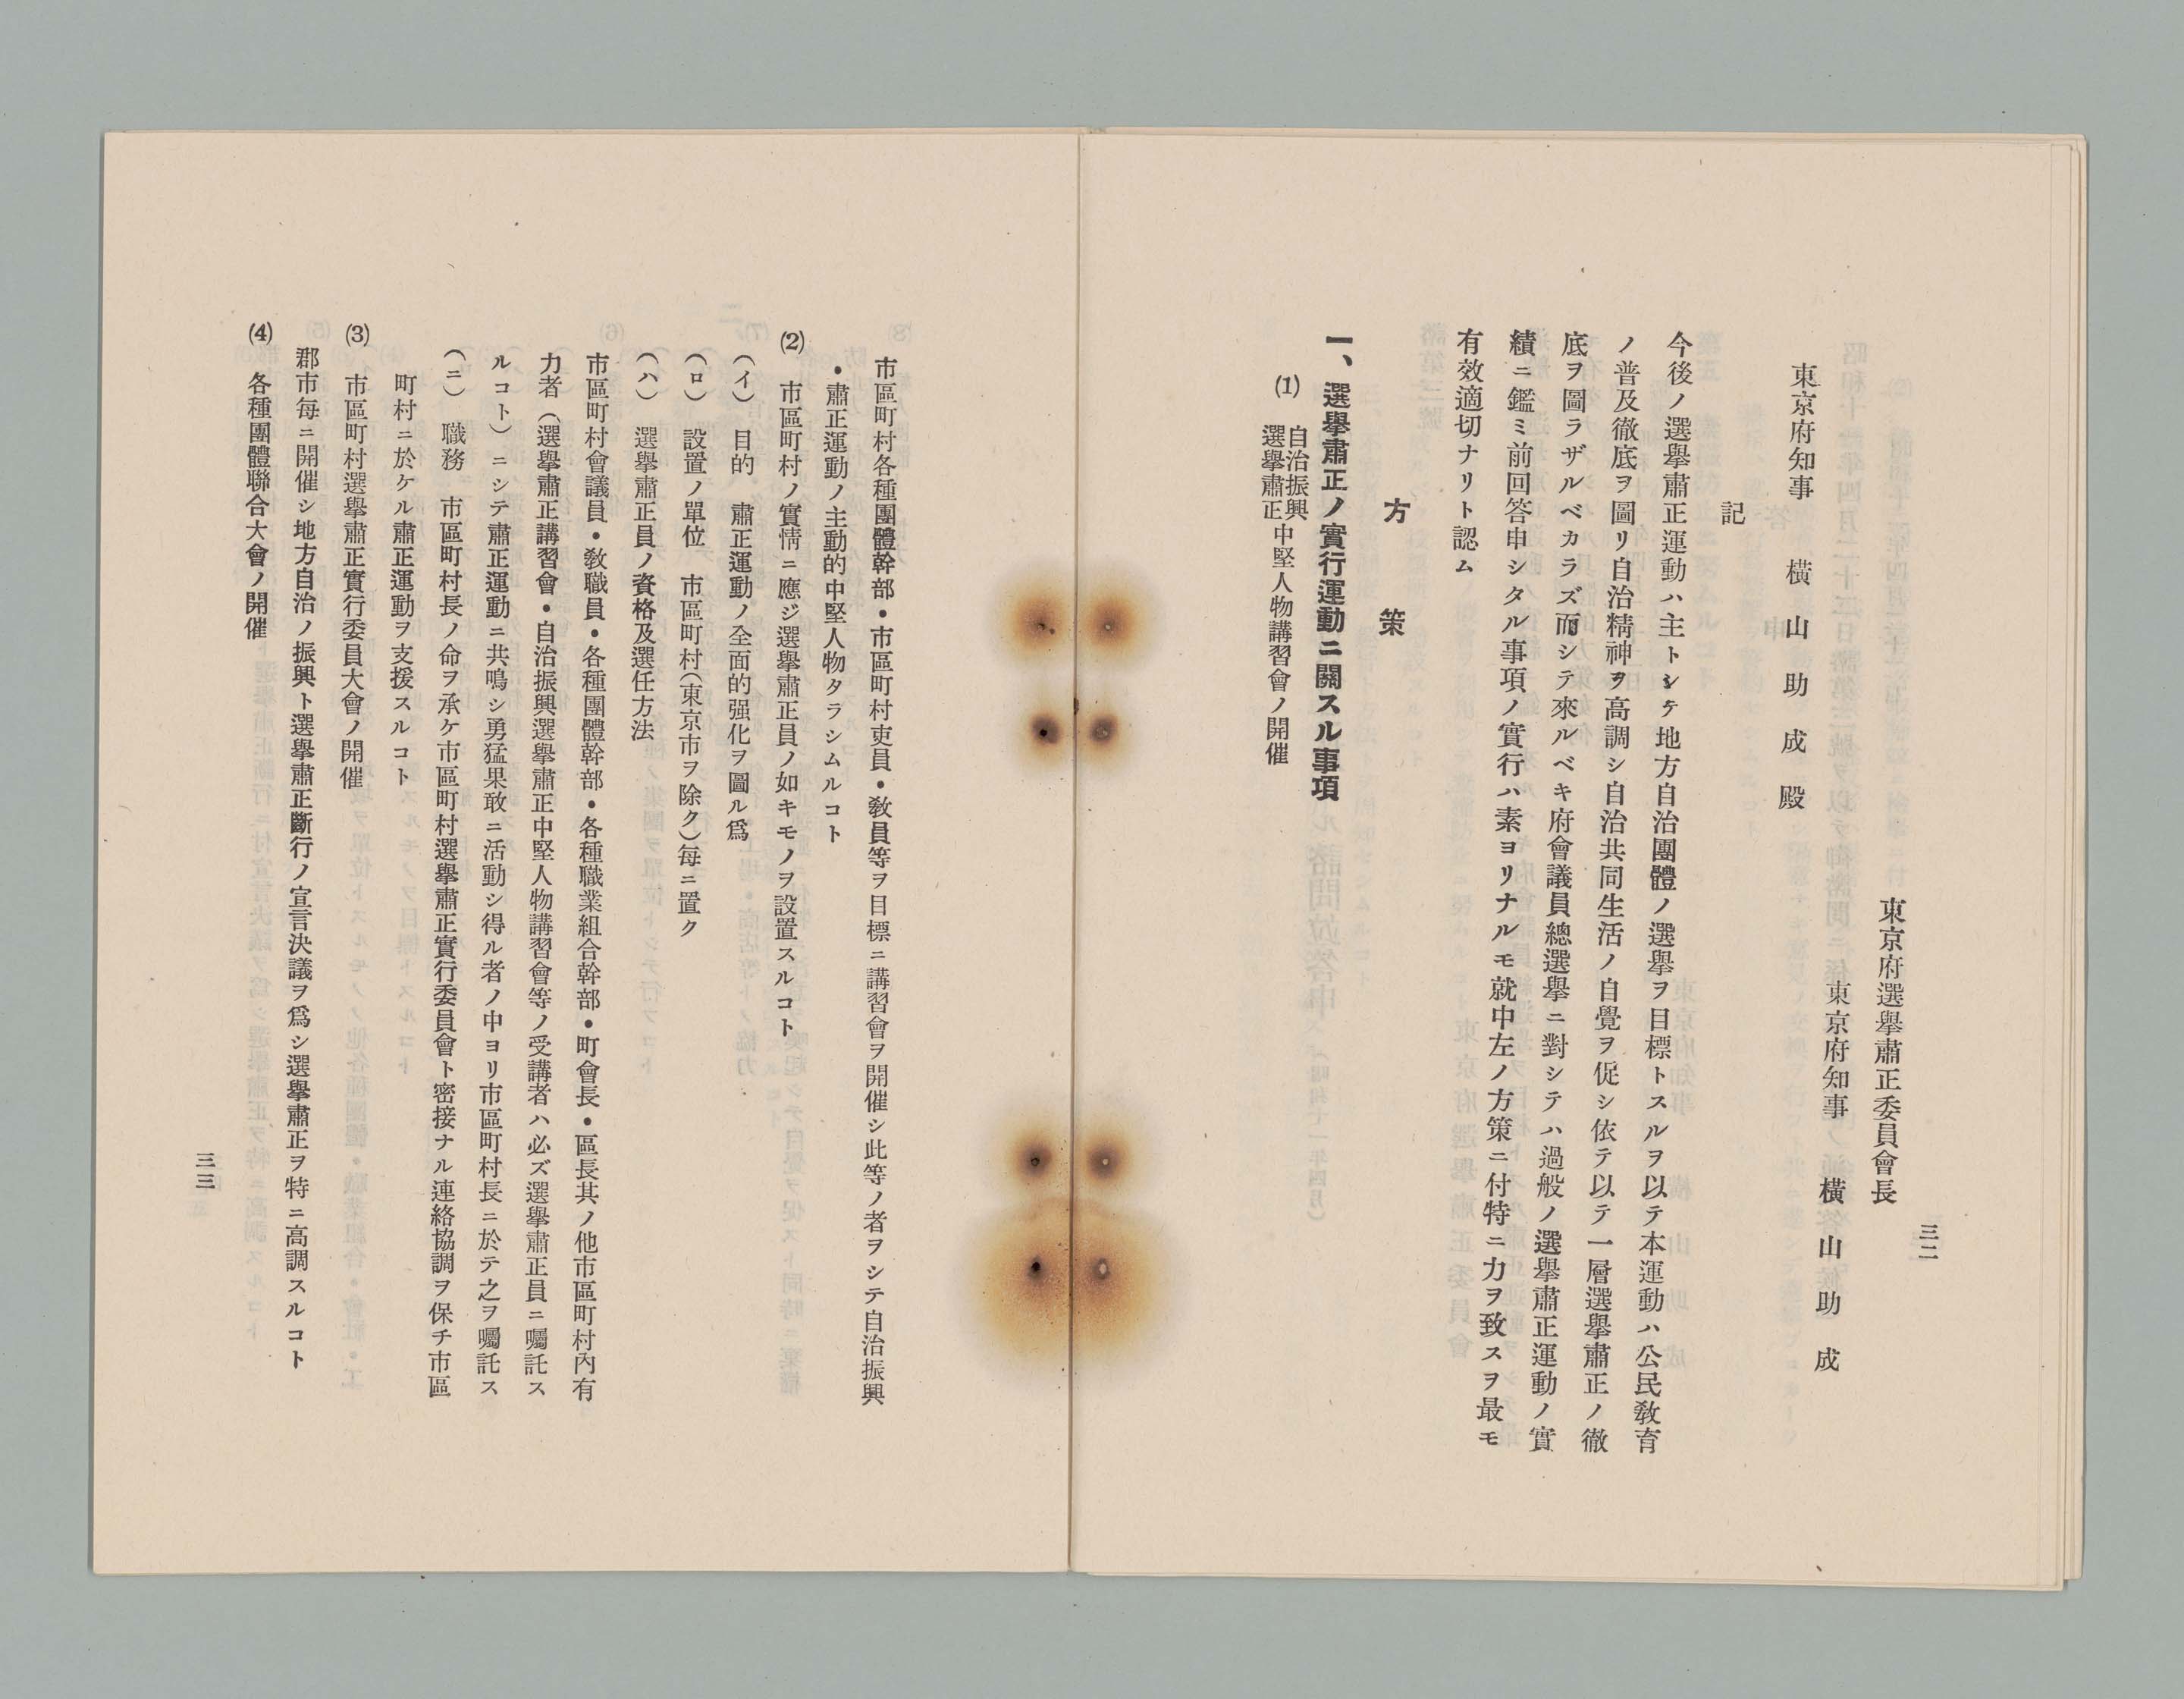 三二
東京府選擧肅正委員會長
東京府知事　橫山助成
東京府知事　橫山助成殿
記
今後ノ選擧肅正運動ハ主トシテ地方自治團體ノ選擧ヲ目標トスルヲ以テ本運動ハ公民敎育
ノ普及徹底ヲ圖リ自治精神ヲ高調シ自治共同生活ノ自覺ヲ促シ依テ以テ一層選擧肅正ノ徹
底ヲ圖ラザルベカラズ而シテ來ルベキ府會議員總選擧ニ對シテハ過般ノ選擧肅正運動ノ實
績ニ鑑ミ前回答申シタル事項ノ實行ハ素ヨリナルモ就中左ノ方策ニ付特ニ力ヲ致スヲ最モ
有效適切ナリト認ム
方策
一、選擧肅正ノ實行運動ニ關スル事項
⑴　自治振興
選擧肅正中堅人物講習會ノ開催
市區町村各種團體幹部・市區町村吏員・敎員等ヲ目標ニ講習會ヲ開催シ此等ノ者ヲシテ自治振興
・肅正運動ノ主動的中堅人物タラシムルコト
⑵　市區町村ノ實情ニ應ジ選擧肅正員ノ如キモノヲ設置スルコト
（イ）　目的　肅正運動ノ全面的强化ヲ圖ル爲
（ロ）　設置ノ單位　市區町村（東京市ヲ除ク）每ニ置ク
（ハ）　選擧肅正員ノ資格及選任方法
市區町村會議員・敎職員・各種團體幹部・各種職業組合幹部・町會長・區長其ノ他市區町村內有
力者（選擧肅正講習會・自治振興選擧肅正中堅人物講習會等ノ受講者ハ必ズ選擧肅正員ニ囑託ス
ルコト）ニシテ肅正運動ニ共鳴シ勇猛果敢ニ活動シ得ル者ノ中ヨリ市區町村長ニ於テ之ヲ囑託ス
（ニ）　職務　市區町村長ノ命ヲ承ケ市區町村選擧肅正實行委員會ト密接ナル連絡協調ヲ保チ市區
町村ニ於ケル肅正運動ヲ支援スルコト
⑶　市區町村選擧肅正實行委員大會ノ開催
郡市每ニ開催シ地方自治ノ振興ト選擧肅正斷行ノ宣言決議ヲ爲シ選擧肅正ヲ特ニ高調スルコト
⑷　各種團體聯合大會ノ開催
三三